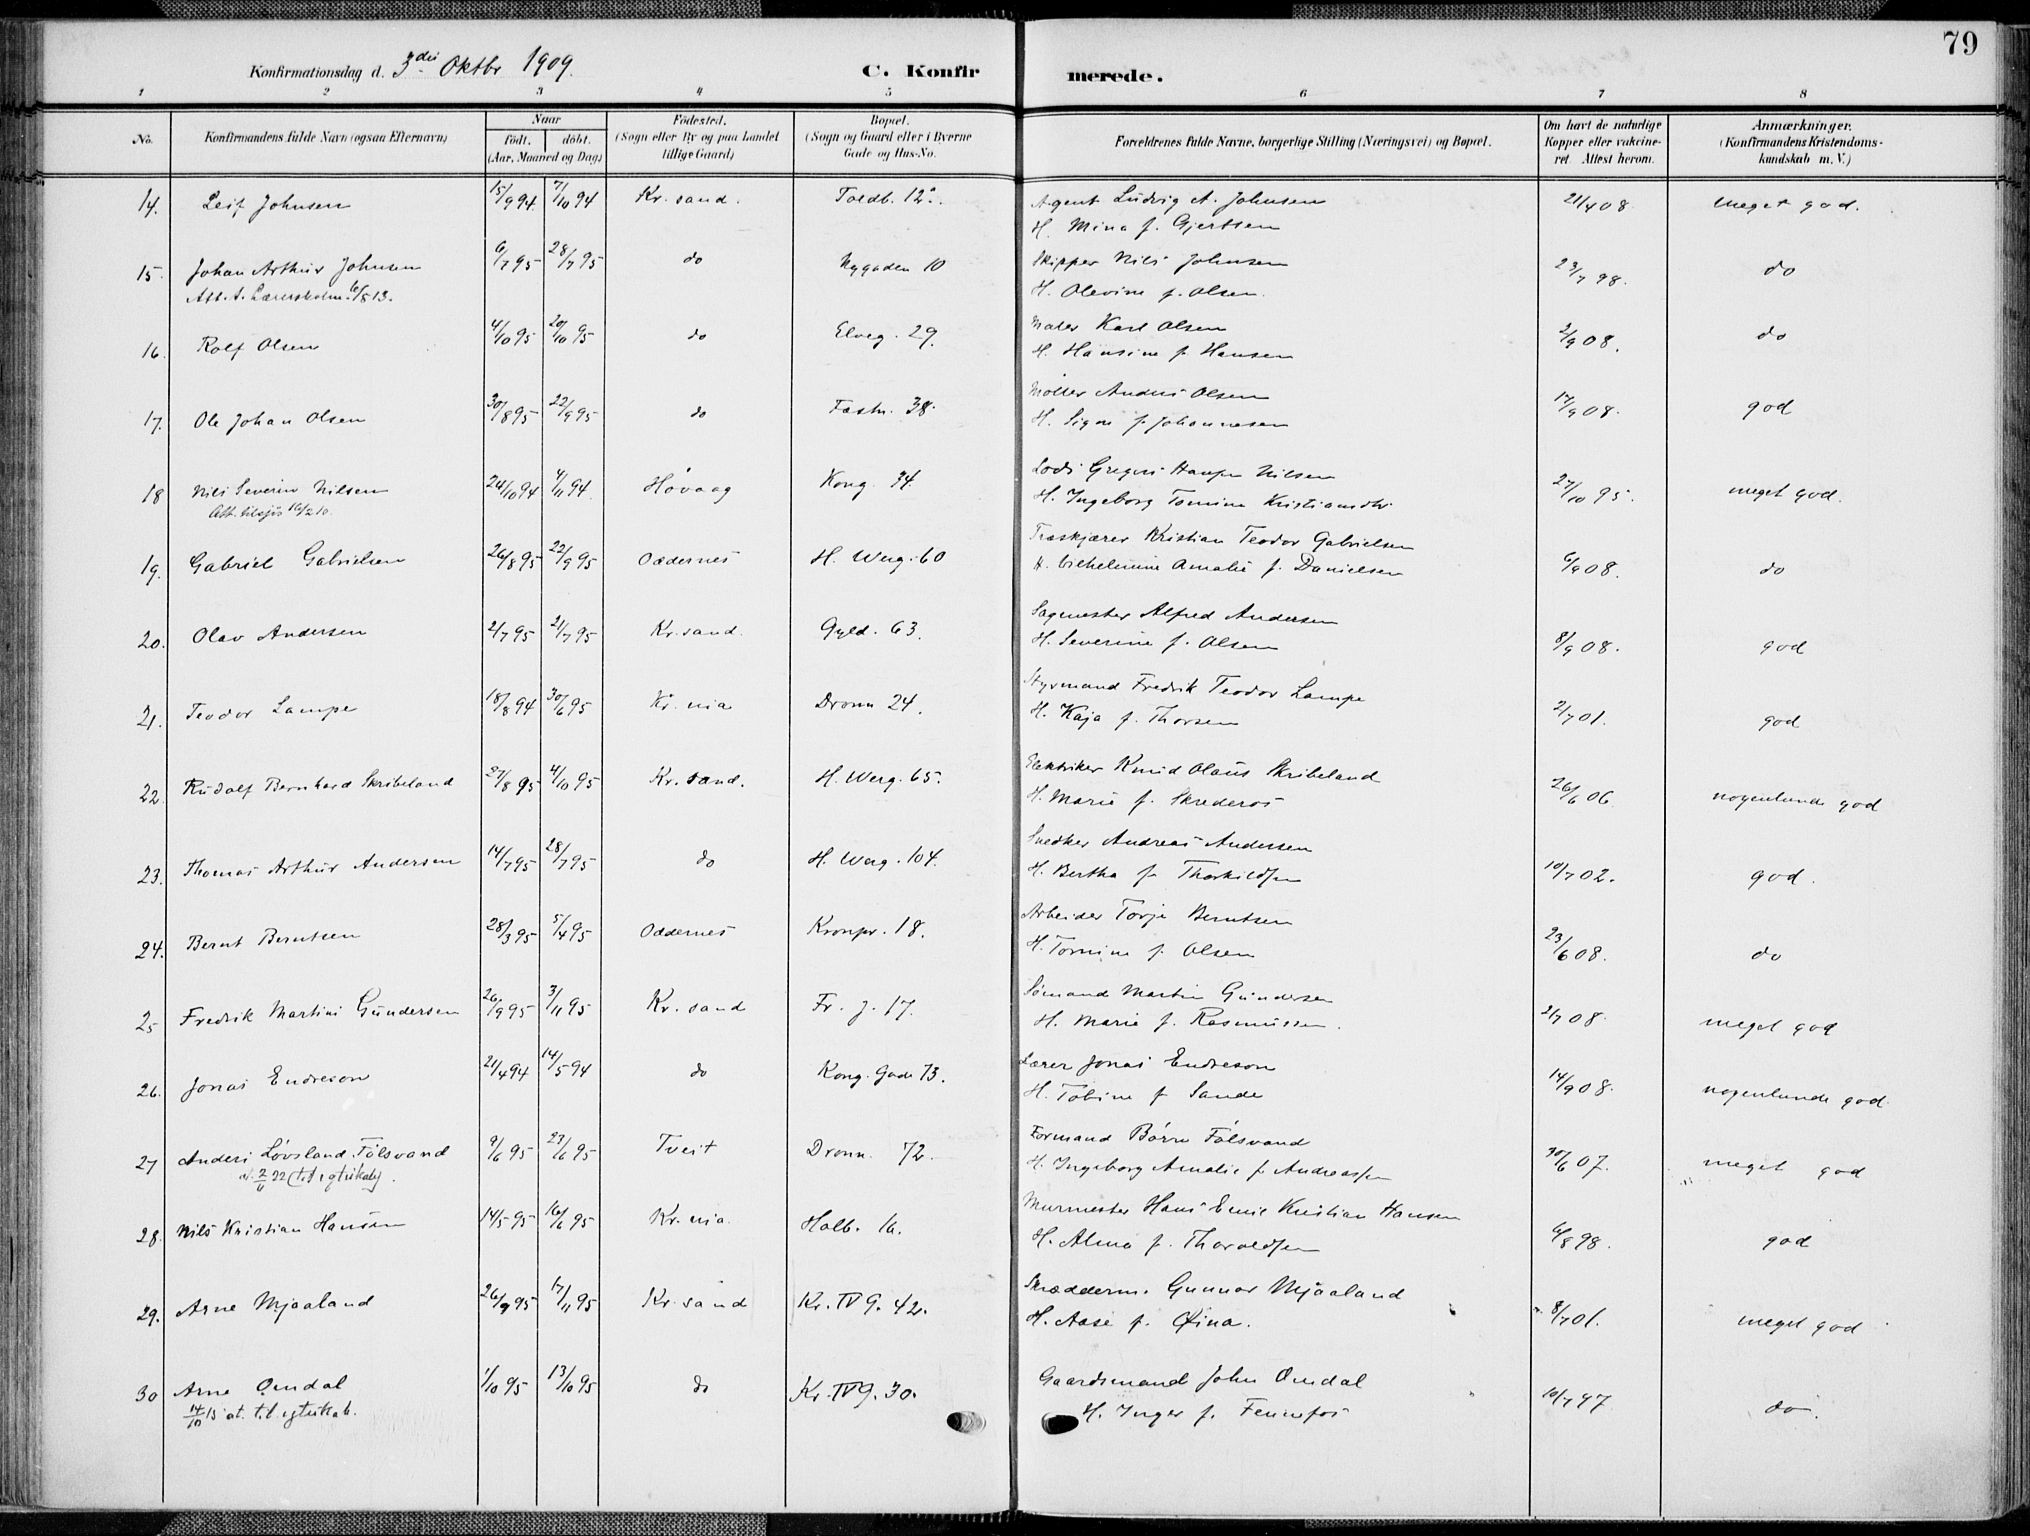 79
Konfirmationsdag d. 3die Oktbr 1909.
C. Konfirmerede.
1 2 3 4 5 6 7 8
No. | Konfirmandens fulde Navn (ogsaa Efternavn) | Naar födt. döbt. (Aar, Maaned og Dag) | Födested. (Sogn eller By og paa Landet tillige Gaard) | Bopæl. (Sogn og Gaard eller i Byerne Gade og Hus-No. | Forældrenes fulde Navne, borgerlige Stilling (Næringsvei) og Bopæl. | Om havt de naturlige Kopper eller vakcineret. Attest herom. | Anmærkninger. (Konfirmandens Kristendomskundskab m. V.)
14. Leif Johnsen 15/9 94 7/10 94 Kr. sand. Toldb. 12. Agent Ludvig A. Johnsen 21/4 08 meget god.
H. Mina f. Gjertsen
15. Johan Arthur Johnsen 6/7 95 28/7 95 do Nygaden 10 Skipper Nils Johnsen 23/7 98. do
6/8 13. H. Olevine f. Olsen.
16. Rolf Olsen 4/10 95 20/10 95 do Elveg. 29. Maler Karl Olsen 2/9 08. do
H. Hansine f. Hansen
17. Ole Johan Olsen 30/8 95 22/9 95 do Festn. 38. Møller Andreas Olsen 17/9 08. god
H. Signe f. Johannesen
18 Nils Severin Nilsen 24/10 94 4/11 94 Høvaag Kong. 34 Lods Gregers Nilsen 27/10 95. meget god.
Att. tilsjøs 16/2 10. H. Ingeborg Tomine Kristiansdtr.
19. Gabriel Gabrielsen 26/8 95 22/9 95 Oddernes H. Werg. 60 Træskjærer Kristian Teodor Gabrielsen 6/9 08. do
H. Vilhelmine Amalie f. Danielsen
20. Olav Andersen 2/7 95 21/7 95 Kr. sand. Gyld. 63. Sagmester Alfred Andersen 8/9 08. god
H. Severine f. Olsen
21. Teodor Lampe 18/8 94 30/6 95 Kr. nia Dronn 24. Styrmand Fredrik Teodor Lampe 2/7 01. god
H. Kaja f. Thorsen
22. Rudolf Bernhard Skribeland 27/8 95 4/10 95 Kr. sand. H. Werg. 65. Elektriker Knud Olaus Skribeland 26/6 06. nogenlunde god
H. Marie f. Skrederos
23. Thomas Arthur Andersen 14/7 95 28/7 95 do H. Werg. 104. Snedker Andreas Andersen 10/7 02. god.
H. Bertha f. Thorkildsen
24. Bernt Berntsen 28/3 95 5/4 95 Oddernes Kronpr. 18. Arbeider Torje Berntsen 23/6 08. do
H. Tomine f. Olsen
25 Fredrik Martin Gundersen 26/9 95 3/11 95 Kr. sand Fr. j. 17. Sømand Martin Gundersen 2/7 08. meget god
H. Marie f. Rasmussen.
26. Jonas Endreson 21/4 94 14/5 94 do Kong. Gade 73. Lærer Jonas Endreson 14/9 08. nogenlunde god.
H. Tobine f. Sande
27 Anders Løvsland Fålsvand 9/6 95 23/6 95 Tveit Dronn. 72. Formand Børre Fålsvand 30/6 07. meget god
at. 2/6 22 (til egteskab). H. Ingeborg Amalie f. Andreassen
28. Nils Kristian Hansen 14/5 95 16/6 95 Kr. nia. Holb. 16. Murmester Hans Emil Kristian Hansen 6/8 98. god
H. Alma f. Thoraldsen
29. Arne Mjaaland 26/9 95 17/11 95 Kr. sand Kr. IV G. 42. Skrædderm. Gunnar Mjaaland 8/7 01. meget god
H. Aase f. Øina.
30 Arne Omdal 1/10 95 13/10 95 do Kr. IV G. 30. Gaardsmand John Omdal 10/7 97 do.
14/10 15 at. til egteskab. H. Inger f. Fennefos